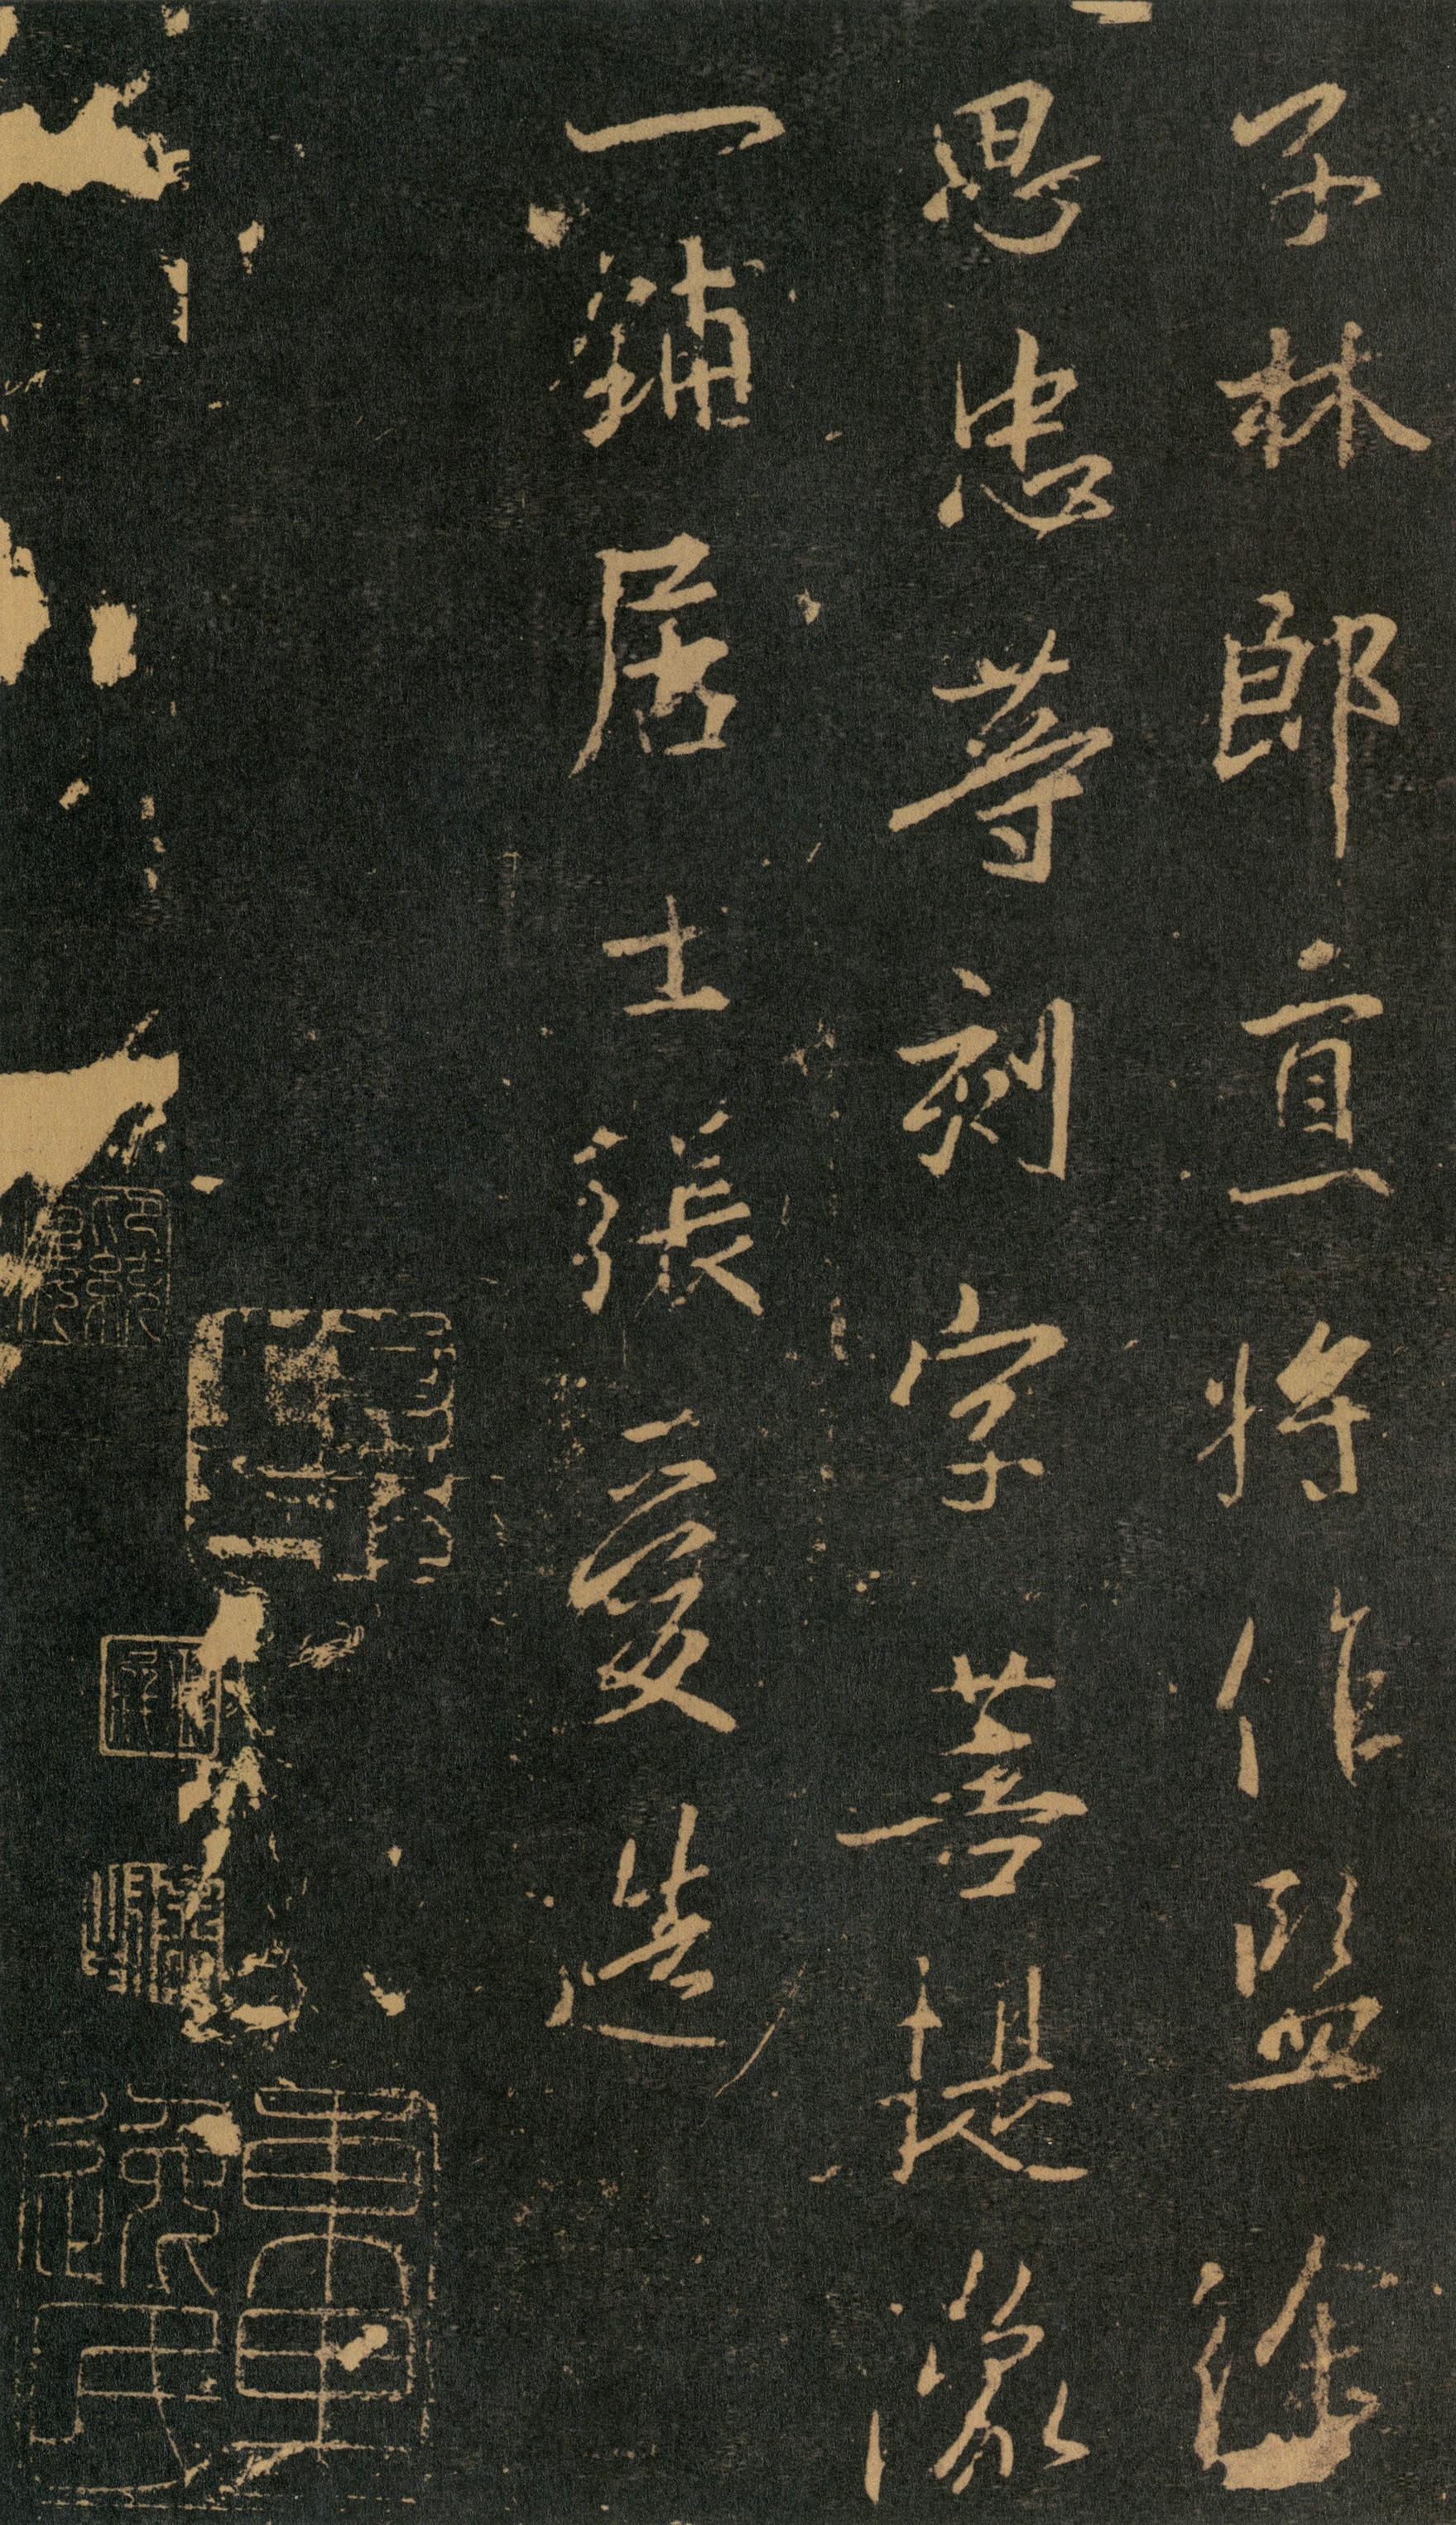 子林郎直將作監徐
思忠等刻字菩提像
一鋪居士張愛造